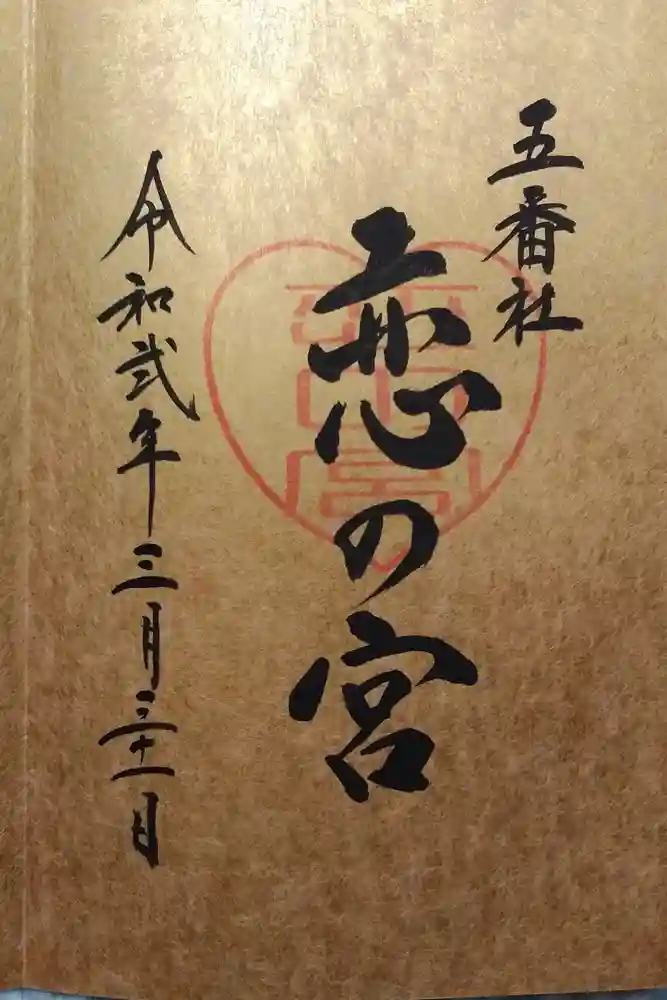 五番社
恋の宮
令和弐年三月三十一日